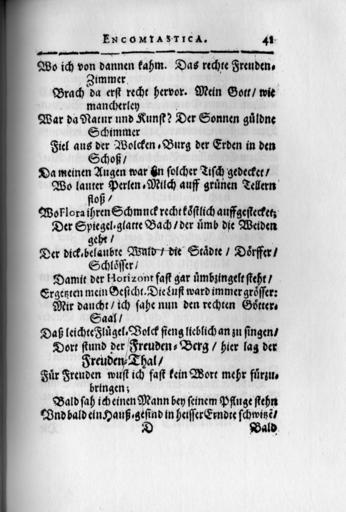 ENCOMIASTICA. 41
Wo ich von dannen kahm. Das rechte Freuden-
Zimmer
Brach da erst recht hervor. Mein Gott/ wie
mancherley
War da Natur und Kunst? Der Sonnen güldne
Schimmer
Fiel aus der Wolcken-Burg der Erden in den
Schoß/
Da meinen Augen war ein solcher Tisch gedecket/
Wo lauter Perlen-Milch auff grünen Tellern
floß/
Wo Flora ihren Schmuck recht köstlich auffgestecket;
Der Spiegel-glatte Bach/ der ümb die Weiden
geht/
Der dick-belaubte Wald/ die Städte/ Dörffer/
Schlösser/
Damit der Horizont fast gar ümbzingelt steht/
Ergetzten mein Gesicht. Die Lust ward immer grösser:
Mir daucht/ ich sahe nun den rechten Götter-
Saal/
Daß leichte Flügel-Volck fieng lieblich an zu singen/
Dort stund der Freuden-Berg/ hier lag der
Freuden-Thal/
Für Freuden wust ich fast kein Wort mehr fürzu-
bringen;
Bald sah ich einen Mann bey seinem Pfluge stehn
Und bald ein Hauß-gesind in heisser Erndte schwitzẽ/
D Bald